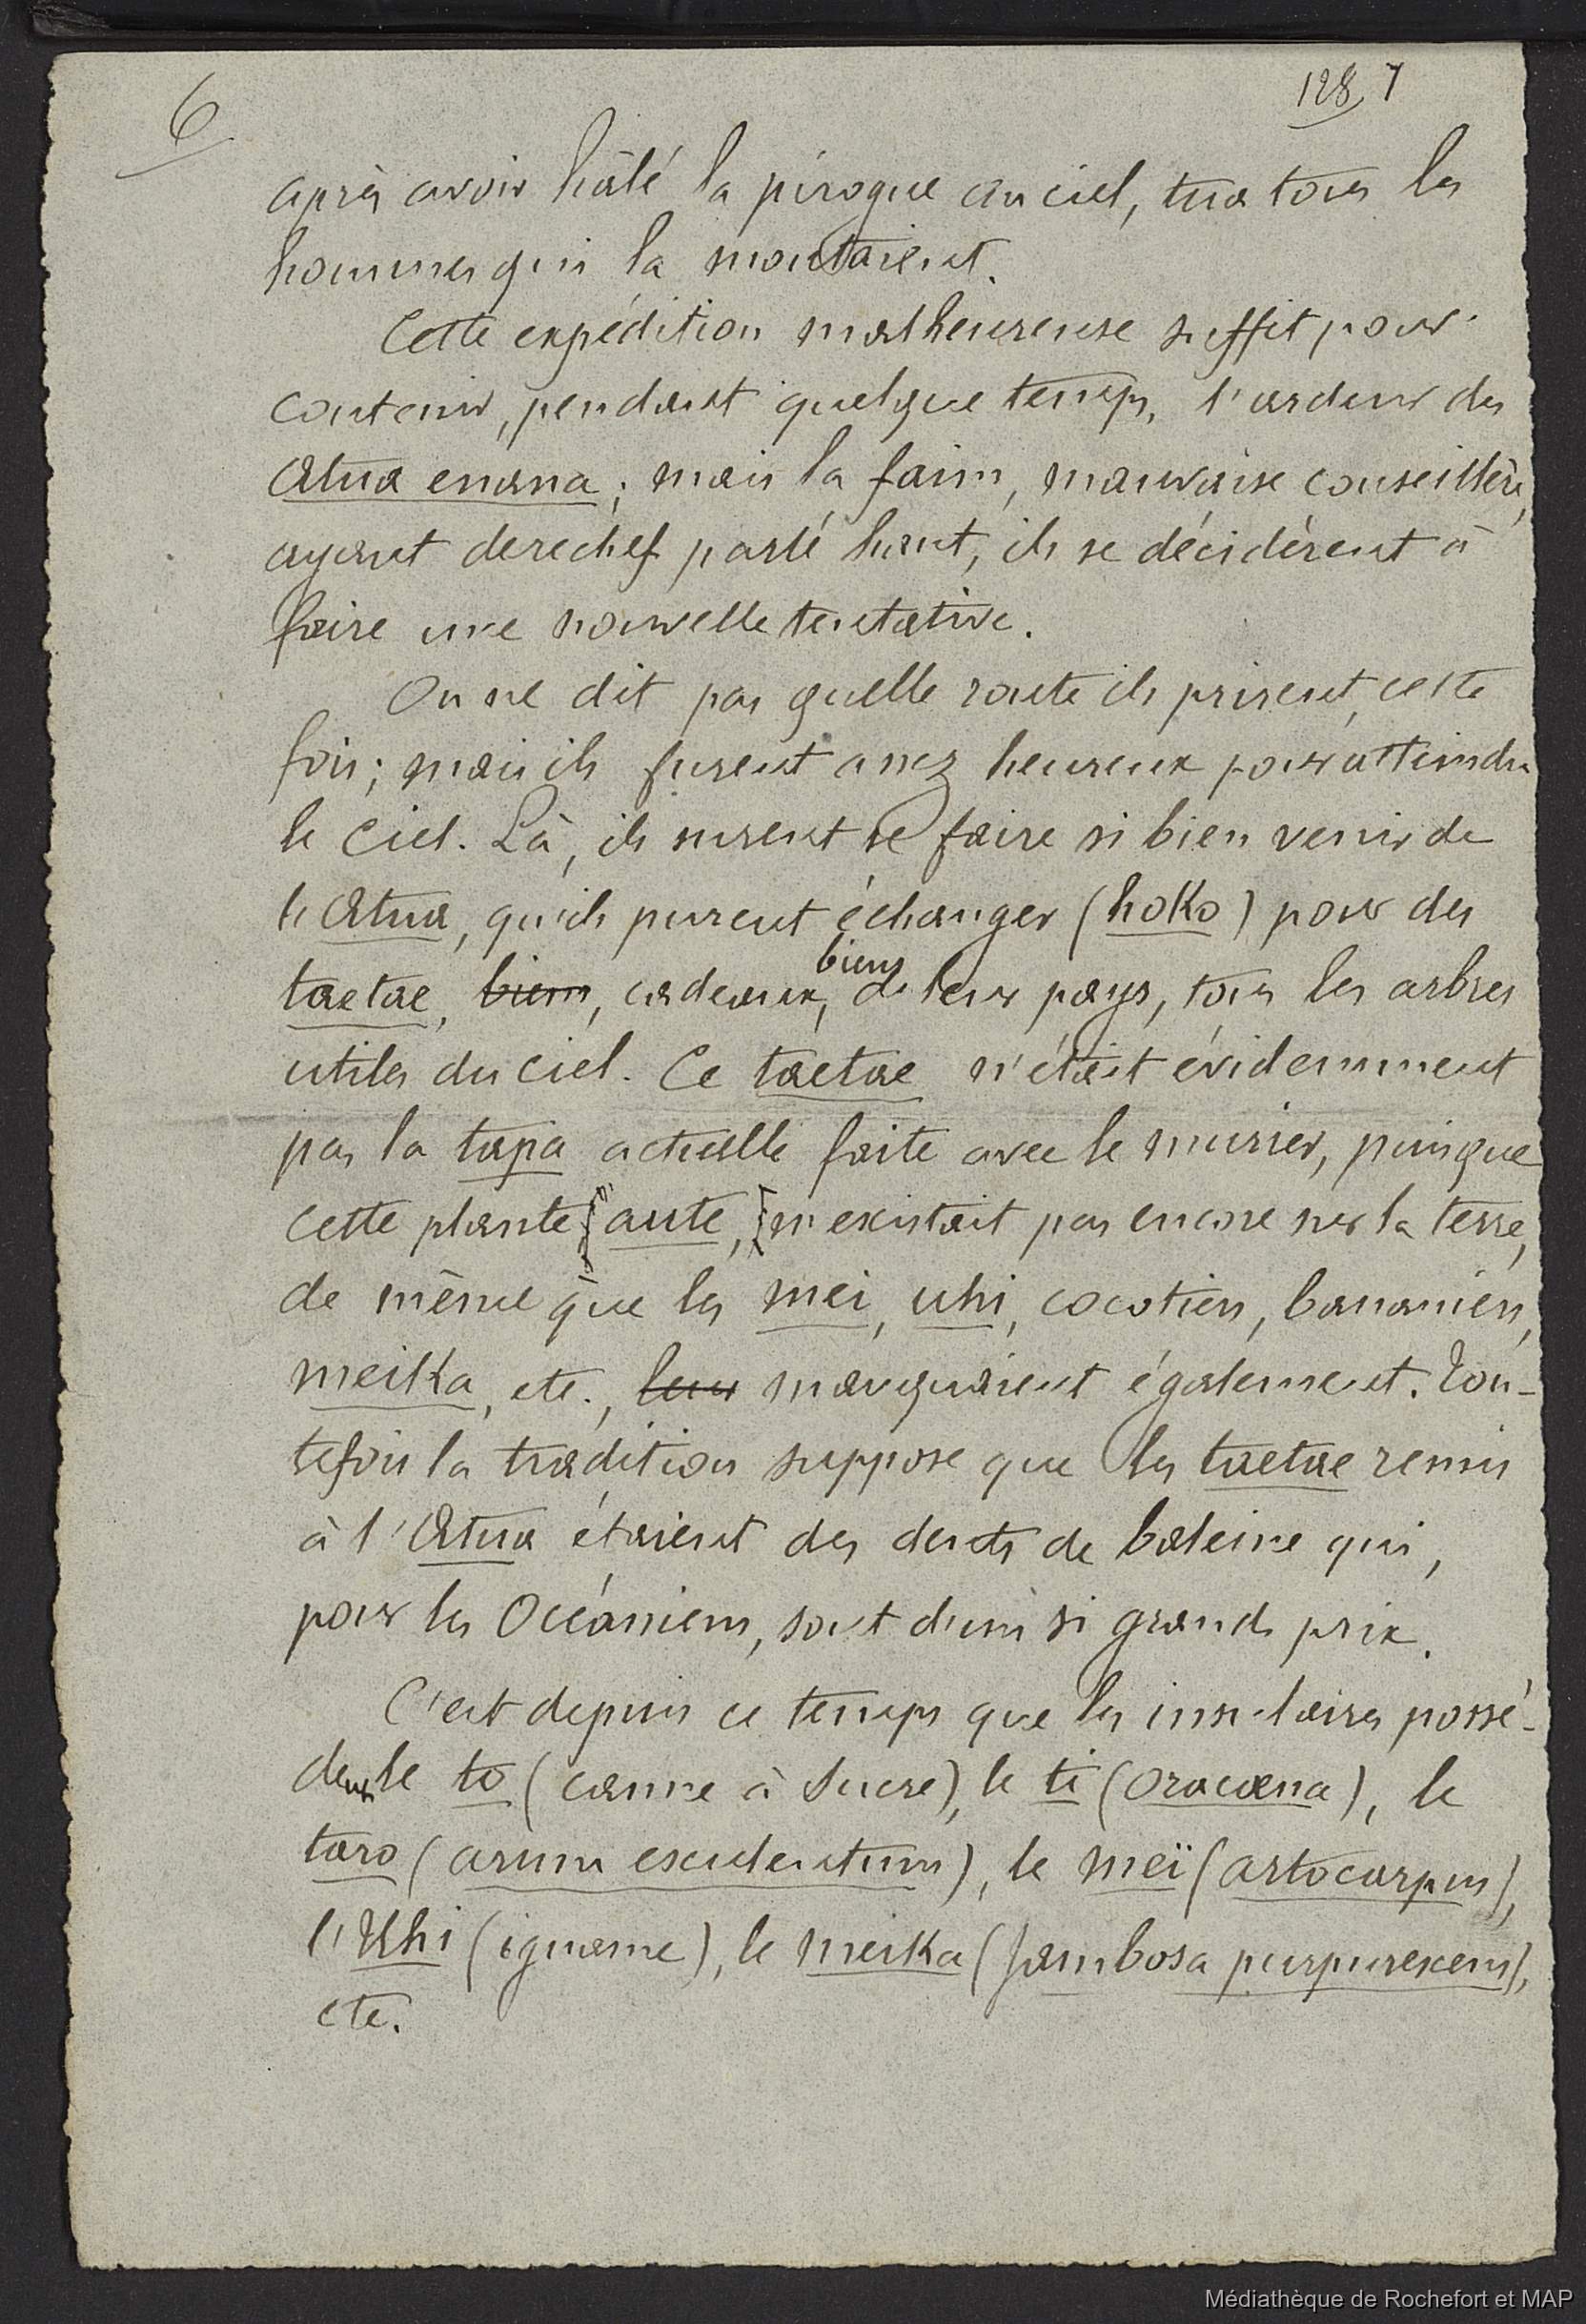 6
128 7
après avoir hâlé la pirogue au ciel, tua tous les
hommes qui la montaient.
Cette expédition malheureuse suffit pour
contenir, pendant quelque temps, l'ardeur des
Atua enana; mais la faim, mauvaise conseillère,
ayant derechef parlé haut, ils se décidèrent à
faire une nouvelle tentative.
On ne dit pas quelle route ils prirent, cette
fois; mais ils furent assez heureux pour atteindre
le ciel. Là, ils surent se faire si bien venir de
l'Atua, qu'ils purent échanger (hoko) pour des
biens
taetae, biens, cadeaux, de leur pays, tous les arbres
utiles du ciel. Ce taetae n'était évidemment
pas la tapa actuelle faite avec le murier, puisque
cette plante, aute, n'existait pas encore sur la terre,
de même que les mei, uhi, cocotiers, bananiers,
meika, etc., leur manquaient également. Tou-
tefois la tradition suppose que les taetae remis
à l'Atua étaient des dents de baleine qui,
pour les Océaniens, sont d'un si grand prix.
C'est depuis ce temps que les insulaires possè-
dent le to (canne à sucre), le ti (oracæna), le
taro (arum esculentum), le meï (artocarpus),
l'Uhi (igname), le meika (Jambosa purpurescens),
etc.
Médiathèque de Rochefort et MAP